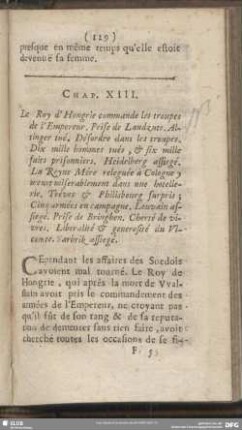 ( 129 )
presque en même temps qu'elle estoit
devenuë sa femme.
CHAP. XIII.
Le Roy d'Hongrie commande les troupes
de l'Empereur. Prise de Landznt. Al-
tinger tué. Désordre dans les troupes.
Dix mille hommes tués, & six mille
faits prisonniers. Heidelberg assiegé.
La Reyne Mére releguée à Cologne;
meurt misérablement dans une hotelle-
rie. Tréves & Philisbourg surpris;
Cinq armées en campagne. Louvain as-
siegé. Prise de Binghen. Cherté de vi-
vres. Liberalité & generosité du Vi-
comte. Sarbrik assiegé.
CEpendant les affaires des Suedois
avoient mal tourné. Le Roy de
Hongrie, qui aprés la mort de Vval-
stain avoit pris le commandement des
armées de l'Empereur, ne croyant pas
qu'il fût de son rang & de sa reputa-
tion de demeurer sans rien faire, avoit
cherché toutes les occasions de se si-
F 5
SLUB